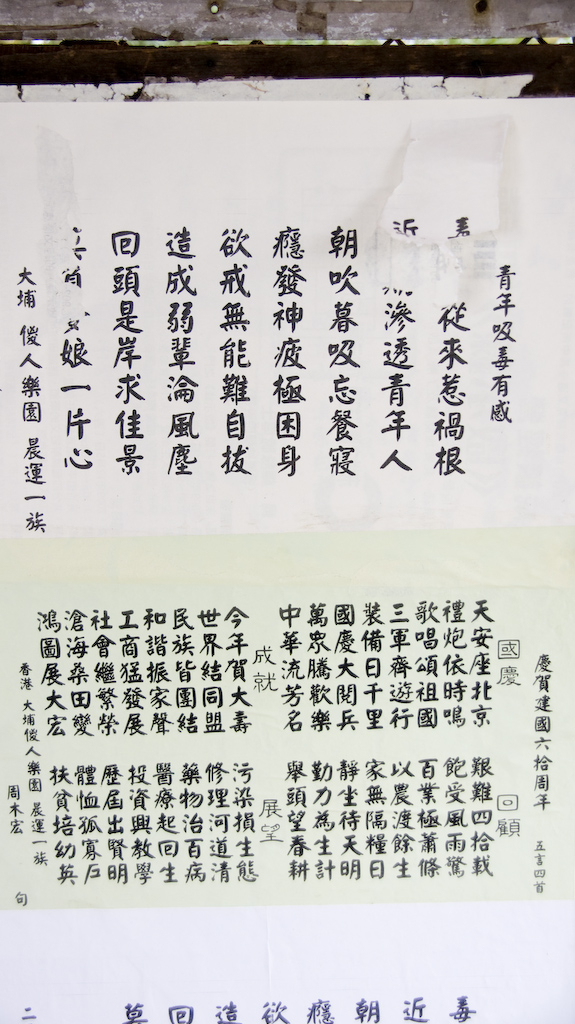 青年吸毒有感
從來惹禍根
近 滲透青年人
朝吹暮吸忘餐寢
癮發神疲極困身
欲戒無能難自拔
造成弱輩淪風塵
回頭是岸求佳景
娘一片心
大埔 傻人樂園 晨運一族
慶賀建國六拾周年 五言四首
國慶
天安座北京
禮炮依時鳴
歌唱頌祖國
三軍齊遊行
裝備日千里
國慶大閱兵
萬眾騰歡樂
中華流芳名
成就
今年賀大壽
世界結同盟
民族皆團結
和諧振家聲
工商猛發展
社會繼繁榮
滄海桑田變
鴻圖展大宏
回顧
艱難四拾載
飽受風雨驚
百業極蕭條
以農渡餘生
家無隔糧日
靜坐待天明
勤力為生計
舉頭望春耕
展望
污染損生態
修理河道清
藥物治百病
醫療起回生
投資興教學
歷屆出賢明
體恤孤寡戶
扶貧培幼英
香港 大埔傻人樂園 晨運一族
周木宏
句
毒
近
朝
癮
欲
造
回
莫
二